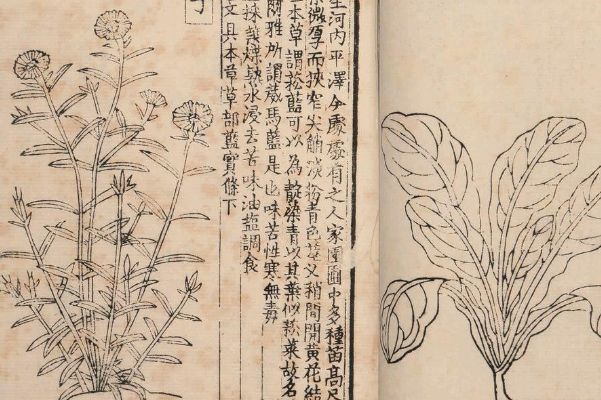 生河內平澤今處處有之人家園圃中多種苗高尺
微厚而狹窄尖艄淡粉青色莖叉稍間開黃花結
本草謂菘藍可以為靛染青以其葉似菘菜故名
爾雅所謂葴馬藍是也味苦性寒無毒
採葉煠熟水浸去苦味油鹽調食
文具本草草部藍實條下